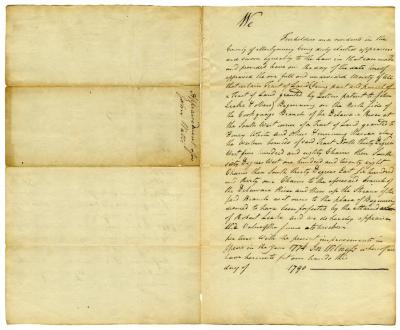 We
Freeholders and residents in the
County of Montgomery being duly elected appraisers
and sworn agreeably to the Law in that case made
and provided have on the day of the date hereof
appraised the one full and undivided Moiety of all
that certain Tract of Land being part and parcel of
a tract of Land granted by Letters patent to John
Leake & others Beginning on the North side of
the Cookquago Branch of the Delaware River at
the South West corner of a tract of Land granted to
Henry White and others & running thence along
the western bounds of said Tract North thirty Degrees
West five hundred and eighty Chains then South
sixty Degrees West one hundred and twenty eight
Chains then South thirty Degrees East six hundred
and thirty one Chains to the aforesaid branch of
the Delaware River and then up the Stream of the
said Branch as it runs to the place of Beginning
deemed to have been forfeited by the attainder
of Robert Leake and we do hereby appraise
the Value of the same at
per acre with the present improvements in
Specie in the Year 1774 In Witness whereof we
have hereunto set our hands this
day of 1790
Appraisement for
John Watts